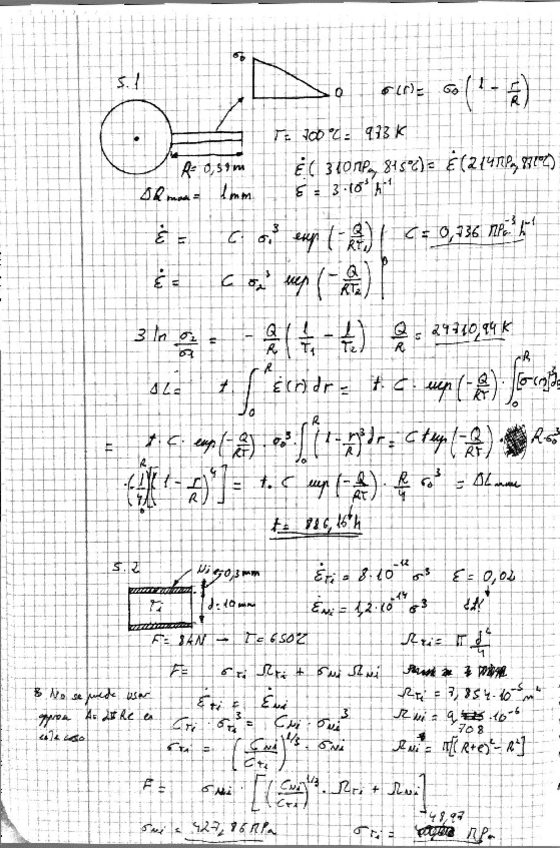 5.1
σ₀
0
σ(r) = σ₀ (1 - r/R)
T = 700ºC = 973 K
R = 0,59 m
ε̇ (310 MPa, 815ºC) = ε̇ (214 MPa,
ΔR max = 1 mm
ε̇ = 3·10⁻³ h⁻¹
ε̇ = C · σ₁³ exp (-Q/RT₁)
C = 0,736 MPa⁻³ h⁻¹
ε̇ = C σ₂³ exp (-Q/RT₂)
3 ln σ₂/σ₁ = -Q/R (1/T₁ - 1/T₂) Q/R = 24710,94 K
ΔL = t ∫₀ᴿ ε̇(r) dr = t · C · exp (-Q/RT) · ∫₀ᴿ [σ(r)]³ dr
= t · C · exp (-Q/RT) · σ₀³ ∫₀ᴿ (1 - r/R)³ dr = C t exp (-Q/RT) · R σ₀³
· (-1/4) [(1 - r/R)⁴]₀ᴿ = t · C exp (-Q/RT) · R/4 σ₀³ = ΔL max
t = 886,16 h
5.2
Ni e=0,3 mm
Ti
d=10 mm
ε̇Ti = 8·10⁻¹² σ³ ε = 0,02
ε̇Ni = 1,2·10⁻¹⁴ σ³
F = 8 kN → T = 650ºC
ΩTi = π d²/4
F = σTi ΩTi + σNi ΩNi
ΩTi = 7,854·10⁻⁵ m²
* No se puede usar
aprox A = 2πRe en
este caso
ε̇Ti = ε̇Ni
CTi · σTi³ = CNi · σNi³
ΩNi = 9,708·10⁻⁶
σTi = (CNi/CTi)^1/3 · σNi
ΩNi = π[(R+e)² - R²]
F = σNi · [(CNi/CTi)^1/3 · ΩTi + ΩNi]
σNi = 427,86 MPa
σTi = 48,97 MPa